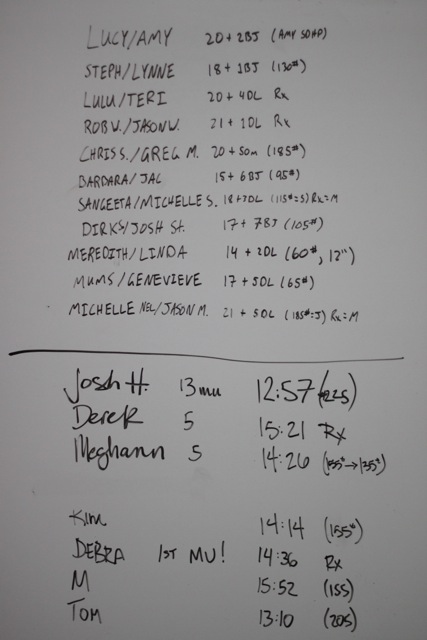 LUCY/AMY 20 + 2BJ (AMY 50#DP)
STEPH/LYNNE 18 + 1BJ (130#)
LULU/TERI 20 + 4DL Rx
ROB W./JASON W. 21 + 1DL Rx
CHRIS S./GREG M. 20 + 50m (185#)
BARBARA/JAC 15 + 6BJ (95#)
SANGEETA/MICHELLE S. 18 + 7DL (115#=S) Rx=M
DIRKS/JOSH St. 17 + 7BJ (105#)
MEREDITH/LINDA 14 + 2DL (60#, 12")
MUMS/GENEVIEVE 17 + 5DL (65#)
MICHELLE NEL/JASON M. 21 + 5DL (185#=J) Rx=M
Josh H. 13mu 12:57 (225)
Derek 5 15:21 Rx
Meghann 5 14:26 (155#→135#)
Kim 14:14 (155#)
DEBRA 1ST MU! 14:36 Rx
M 15:52 (155)
TOM 13:10 (205)